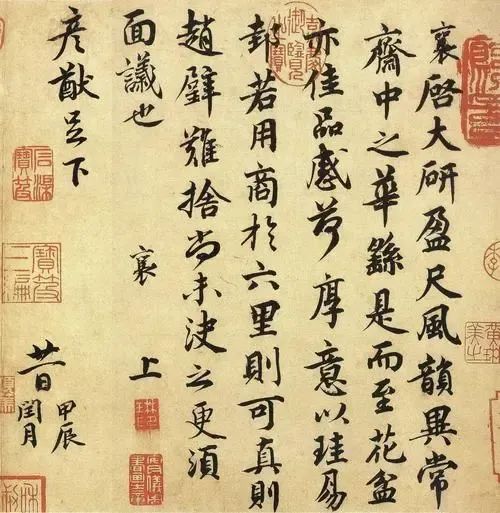 襄啓大研盈尺風韻異常
齋中之華繇是而至花盆
亦佳品感荷厚意以珪易
邽若用商於六里則可真則
趙璧難捨尚未決之更須
面議也
襄上
彥猷足下
廿一日
甲辰
閏月
石渠寶笈
寶笈三編